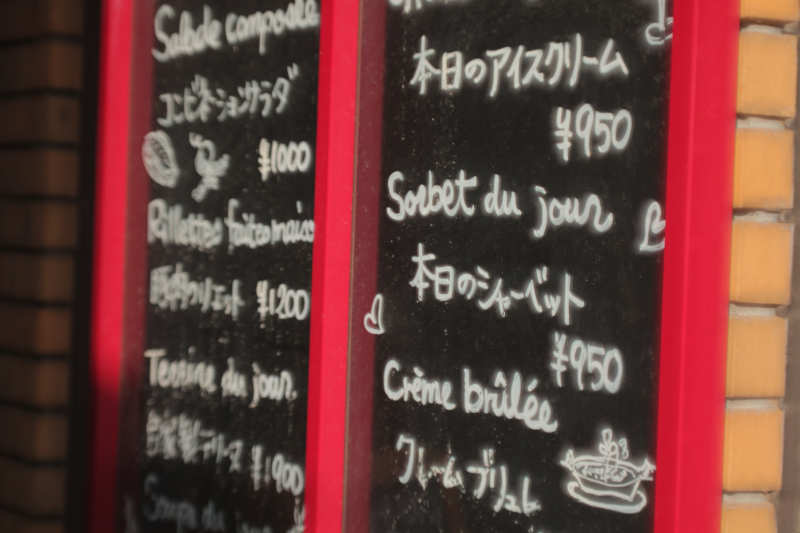 Salade composée
コンビネーションサラダ
¥1000
Rillettes faites maiso
豚肉のリエット ¥1200
Terrine du jour.
自家製テリーヌ ¥1900
Soupe du
本日のアイスクリーム
¥950
Sorbet du jour
本日のシャーベット
¥950
Crème brûlée
クレームブリュレ